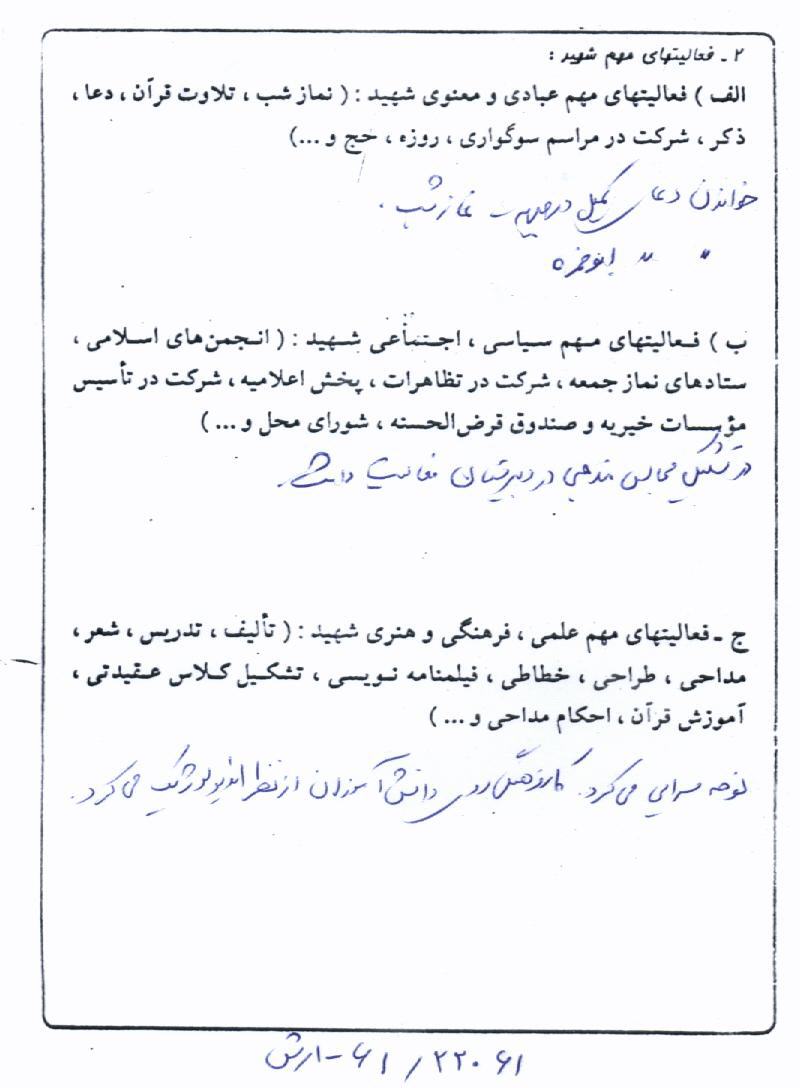 ۲ ـ فعالیتهای مهم شهید :
الف ) فعالیتهای مهم عبادی و معنوی شهید : ( نماز شب ، تلاوت قرآن ، دعا ،
ذکر ، شرکت در مراسم سوگواری ، روزه ، حج و ...)
خواندن دعای کمیل در جبهه ـ نماز شب .
〃 〃 ابوحمزه
ب ) فـعالیتهای مـهم سـیاسی ، اجـتماعی شـهید : ( انـجمن‌های اسـلامی ،
ستادهای نماز جمعه ، شرکت در تظاهرات ، پخش اعلامیه ، شرکت در تأسیس
مؤسسات خیریه و صندوق قرض‌الحسنه ، شورای محل و ... )
در تشکیل مجالس مذهبی در دبیرستان فعالیت داشت.
ج ـ فعالیتهای مهم علمی ، فرهنگی و هنری شهید : ( تألیف ، تدریس ، شعر ،
مداحی ، طراحی ، خطاطی ، فیلمنامه نـویسی ، تشکـیل کـلاس عـقیدتی ،
آموزش قرآن ، احکام مداحی و ... )
نوحه سرایی می‌کرد. کار فرهنگی روی دانش آموزان از نظر ایدئولوژیک می‌کرد.
۲۲۰۶۱ / ۶۱-ارتش